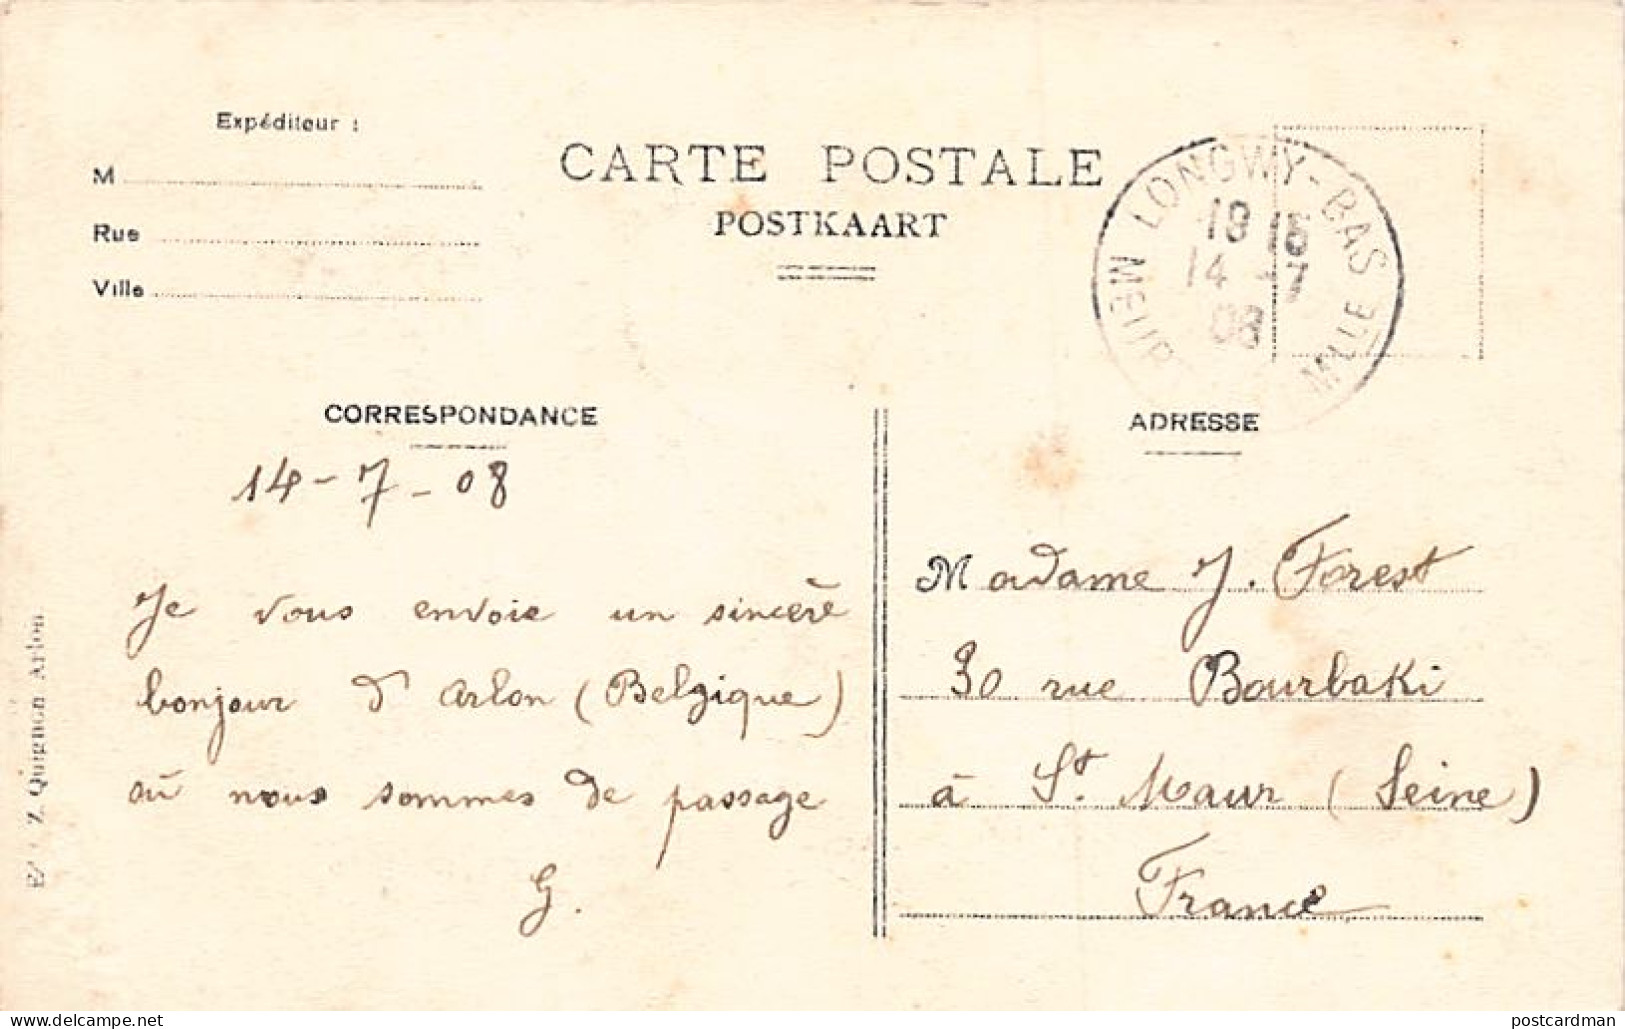 Expéditeur :
CARTE POSTALE
POSTKAART
M
Rue
Ville
LONGWY-BAS
18 15
14 -7
08
MEUR
MLLE
CORRESPONDANCE
ADRESSE
14-7-08
Je vous envoie un sincère
bonjour d'Arlon (Belgique)
où nous sommes de passage
G.
Madame J. Forest
30 rue Bourbaki
à St. Maur (Seine)
France
Z. Quignon Arlon
delcampe.net
postcardman